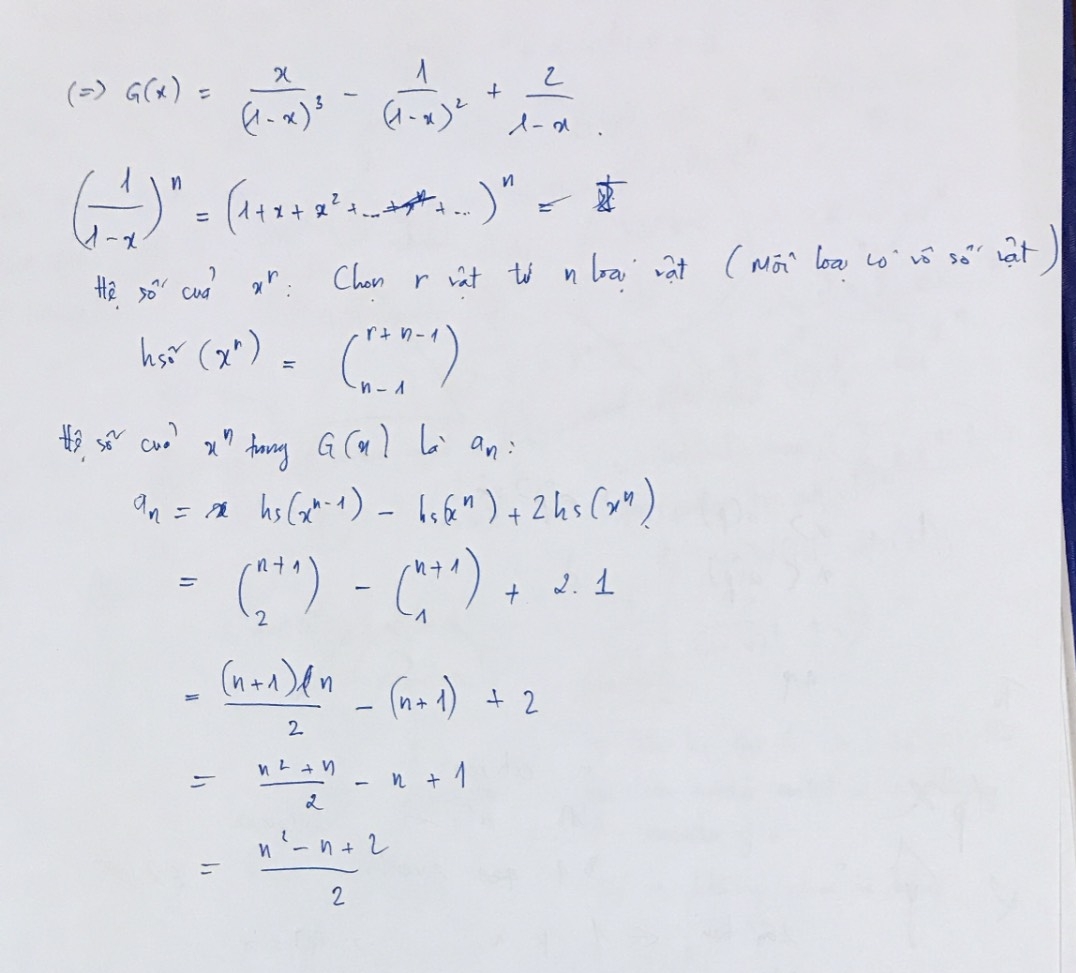 (=) G(x) = x/(1-x)³ - 1/(1-x)² + 2/(1-x).
(1/(1-x))ⁿ = (1+x+x²+...+...)ⁿ =
Hệ số của xʳ: Chọn r vật từ n loại vật (Mỗi loại có vô số vật)
hsố (xʳ) = (r+n-1 n-1)
Hệ số của xⁿ trong G(x) là aₙ:
aₙ = hs(xⁿ⁻¹) - hs(xⁿ) + 2hs(xⁿ)
= (n+1 2) - (n+1 1) + 2.1
= (n+1)n/2 - (n+1) + 2
= (n²+n)/2 - n + 1
= (n²-n+2)/2